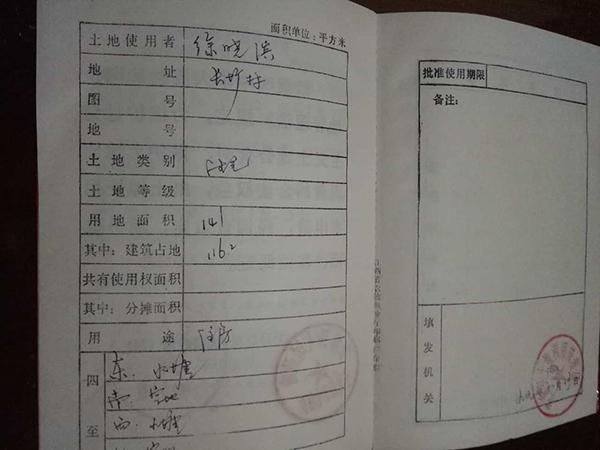 面积单位：平方米
土地使用者 徐晓滨
地址
图号
地号
土地类别
土地等级
用地面积 141
其中：建筑占地 116.2
共有使用权面积
其中：分摊面积
用途 住房
四至
东： 水塘
南： 空地
西： 水塘
批准使用期限
备注：
填发机关